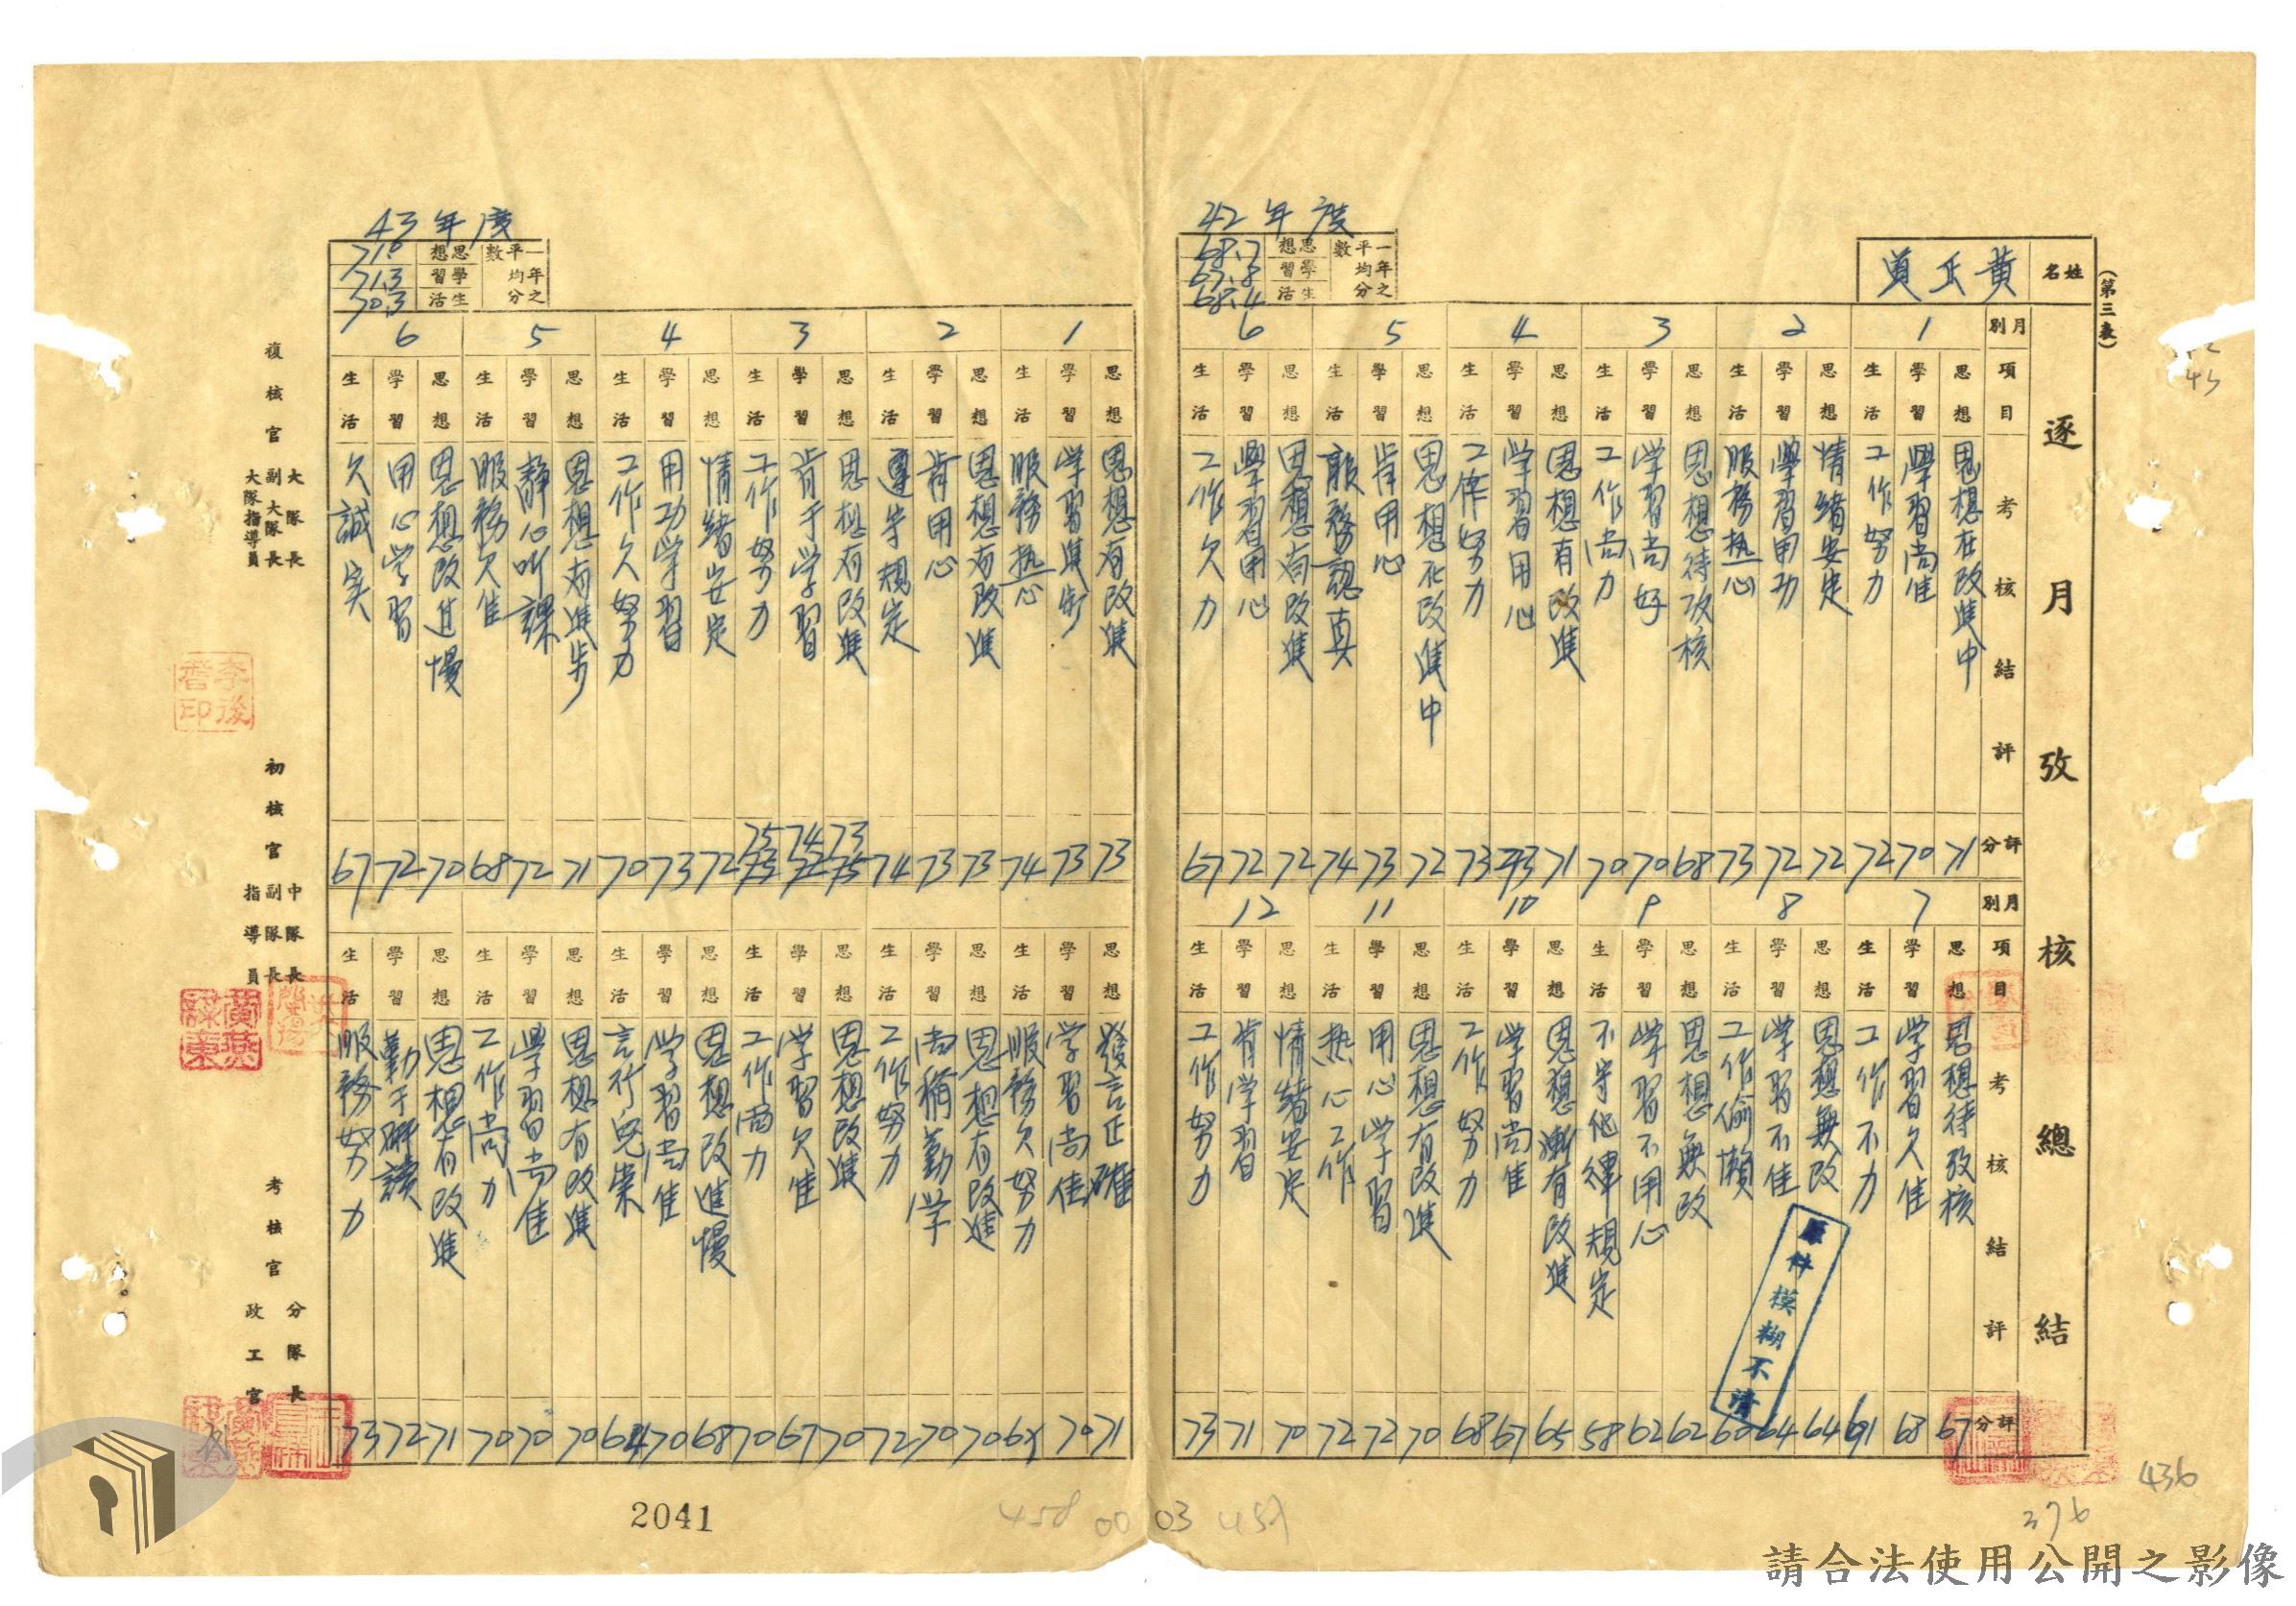 (第三表)
逐月攷核總結
姓名
黃
42年度
一年之平均分數
思想 68.7
學習 67.8
生活 68.4
月別 1 2 3 4 5 6
項目 考核結評 評分
思想 思想在改進中 71
學習 學習尚佳 70
生活 工作努力 72
思想 情緒安定 72
學習 學習用功 72
生活 服務热心 73
思想 思想待攷核 68
學習 学習尚好 70
生活 工作尚力 70
思想 思想有改進 71
學習 学習用心 73
生活 工作努力 73
思想 思想在改進中 72
學習 肯用心 73
生活 服務認真 74
思想 思想有改進 72
學習 學習用心 72
生活 工作欠力 67
月別 7 8 9 10 11 12
項目 考核結評 評分
思想 思想待攷核 67
學習 学習欠佳 68
生活 工作不力 61
思想 思想無改 64
學習 学習不佳 64
生活 工作偷懶 60
思想 思想無改 62
學習 学習不用心 62
生活 不守紀律規定 58
思想 思想漸有改進 65
學習 学習尚佳 67
生活 工作努力 68
思想 思想有改進 70
學習 用心学習 72
生活 热心工作 72
思想 情緒安定 70
學習 肯学習 71
生活 工作努力 73
原件模糊不清
43年度
一年之平均分數
思想 71.0
學習 71.3
生活 70.3
1 2 3 4 5 6
思想 思想有改進 73
學習 学習進步 73
生活 服務热心 74
思想 思想有改進 73
學習 肯用心 73
生活 遵守規定 74
思想 思想有改進 73
學習 肯于学習 74
生活 工作努力 75
思想 情緒安定 72
學習 用功学習 73
生活 工作欠努力 70
思想 思想有進步 71
學習 靜心听課 72
生活 服務欠佳 68
思想 思想改進慢 70
學習 用心学習 72
生活 欠誠实 67
思想 發言正確 71
學習 学習尚佳 70
生活 服務欠努力
思想 思想有改進 70
學習 尚稱勤学 70
生活 工作努力 72
思想 思想改進 70
學習 学習欠佳 67
生活 工作尚力 70
思想 思想改進慢 68
學習 学習尚佳 70
生活 言行
思想 思想有改進 70
學習 學習尚佳 70
生活 工作尚力 70
思想 思想有改進 71
學習 勤于研讀 72
生活 服務努力 73
複核官 大隊長 副大隊長 大隊指導員
李俊
印
初核官 中隊長 副隊長 指導員
黃燕
謀東
考核官 分隊長 政工官
2041
458 00 03 459
376
436
請合法使用公開之影像